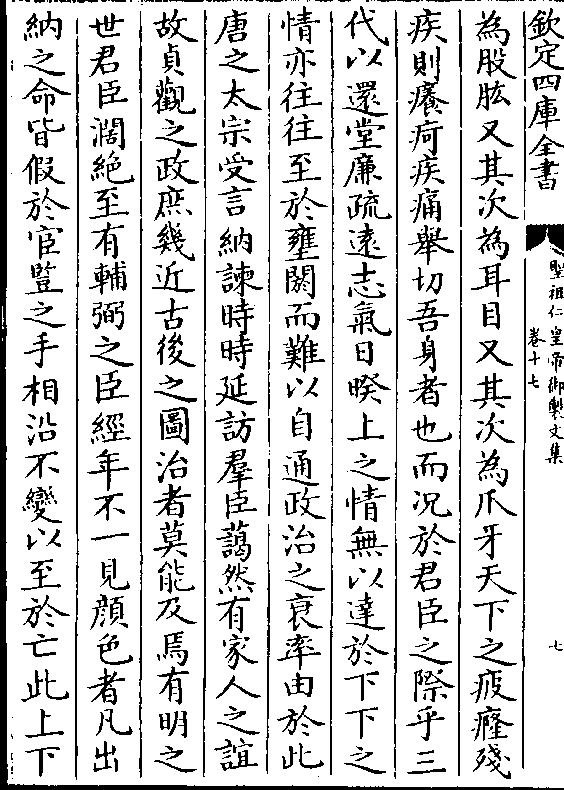 欽定四庫全書
聖祖仁皇帝御製文集
卷十七
七
為股肱又其次為耳目又其次為爪牙天下之疲癃殘
疾則癢疴疾痛舉切吾身者也而况於君臣之際乎三
代以還堂廉疏遠志氣日暌上之情無以達於下下之
情亦往往至於壅閼而難以自通政治之衰率由於此
唐之太宗受言納諫時時延訪羣臣藹然有家人之誼
故貞觀之政庶幾近古後之圖治者莫能及焉有明之
世君臣濶絶至有輔弼之臣經年不一見顔色者凡出
納之命皆假於宦豎之手相沿不變以至於亡此上下